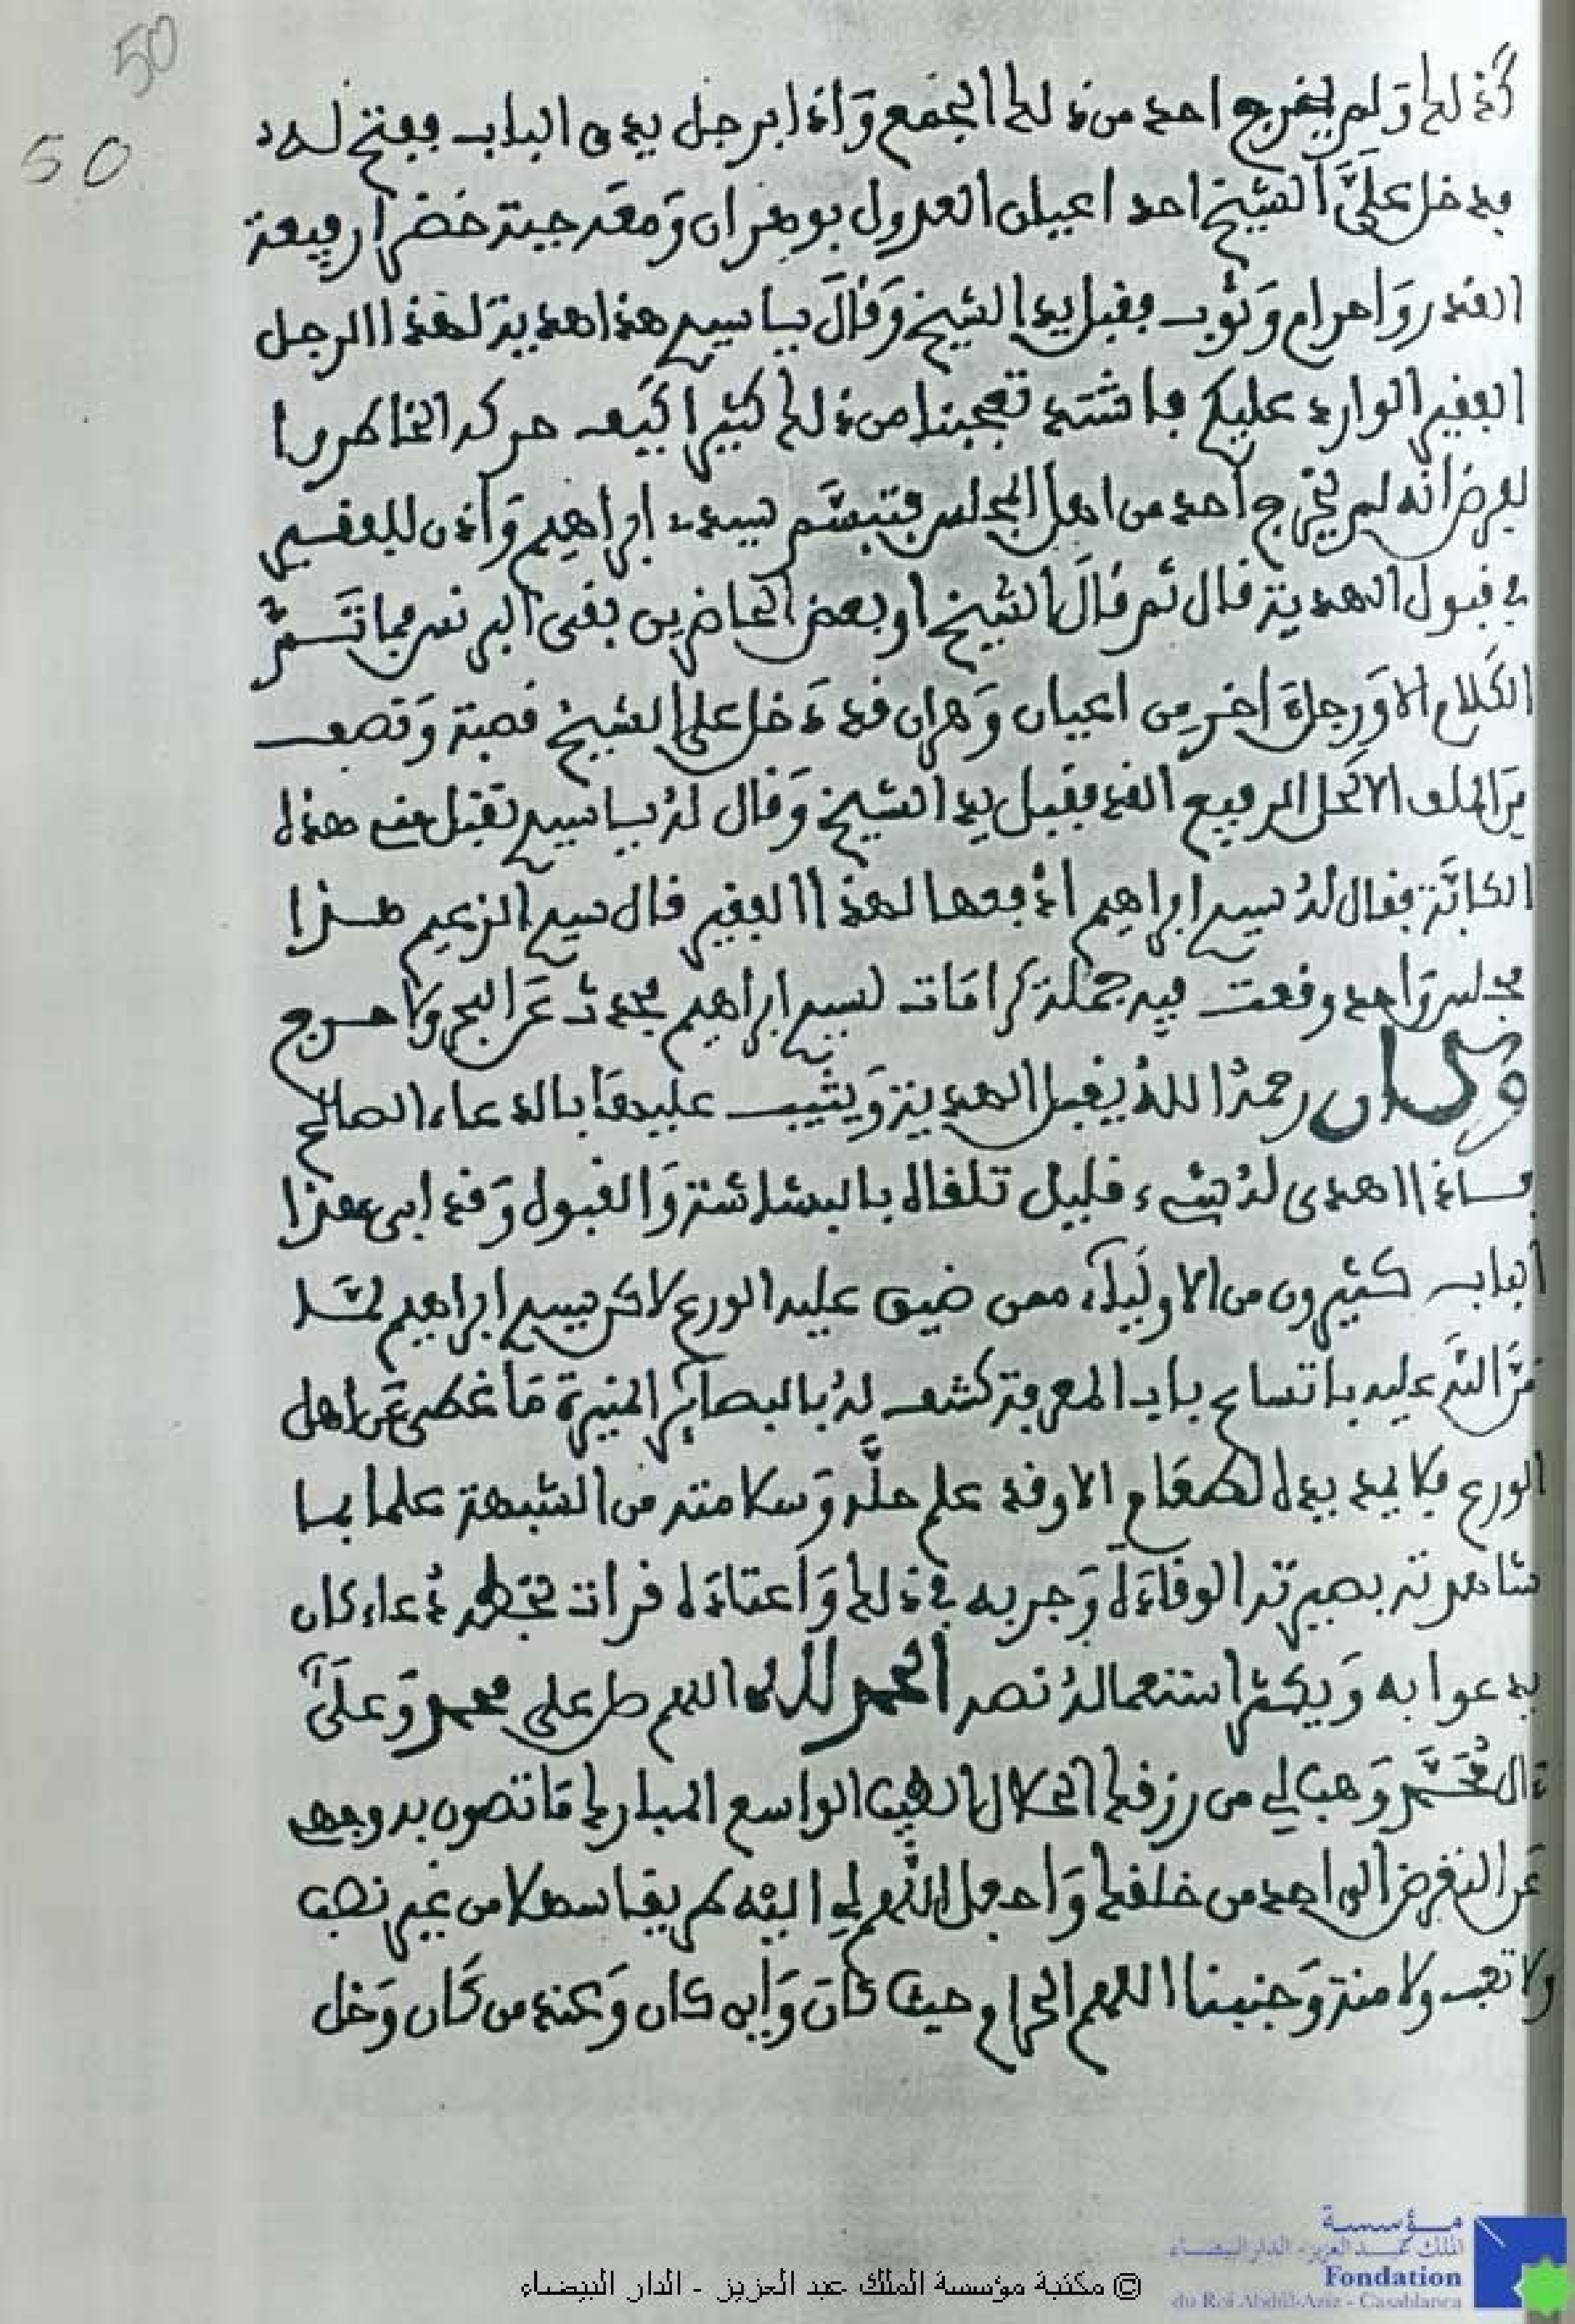 50
50
كذلك ولم يخرج احد من ذلك الجمع واذا برجل يدى الباب ففتح له
فدخل على الشيخ احد اعيان العدول بوهران ومعه جبة خضرا رفيعة
القدر واحرام وثوب فقبل يد الشيخ وقال يا سيدي هذا هدية لهذا الرجل
الفقير الوارد عليكم فاشتد تعجبنا من ذلك كثيرا كيف حركه الخاطر وما
لعرض انه لم يخرج احد من اهل المجلس فتبسم سيدي ابراهيم واذن للفقير
في قبول الهدية قال ثم قال الشيخ او بعض الحاضرين بقي البرنس فما تم
الكلام الا ورجل اخر من اعيان وهران قد دخل على الشيخ قصبة ونصف
من الملف الاكحل الرفيع القد فقبل يد الشيخ وقال له يا سيدي تقبل مني هذه
الكانة فقال له سيدي ابراهيم ادفعها لهذا الفقير قال سيدي الزعيم هذا
مجلس واحد وقعت فيه جملة كرامات لسيدي ابراهيم فحدث عن البحر ولا حرج
وكان رحمه الله يقبل الهدية ويثيب عليها بالدعاء الصالح
فاذا اهدى له شيء قليل تلقاه بالبشاشة والقبول وقد ابى هذا
الباب كثيرون من الاولياء ممن ضيق عليه الورع لاكن سيدي ابراهيم لما
من الله عليه باتساع باب المعرفة كشف له بالبصائر المنيرة ما غطى عن اهل
الورع فلا يمد يده لطعام الا وقد علم حله وسلامته من الشبهة علما بما
شاهدته بصيرته الوقادة وجربه في ذلك واعتاده قرات بخطه دعاء كان
يدعوا به ويكثر استعماله نصه الحمد لله اللهم صل على محمد وعلى
ءال محمد وهب لي من رزقك الحلال الطيب الواسع المبارك ما تصون به وجهي
عن التعرض الى احد من خلقك واجعل اللهم لي اليه طريقا سهلا من غير نصب
ولا تعب ولا منة وجنبنا اللهم الحرام حيث كان واين كان وعند من كان وحل
مؤسسة
الملك عبد العزيز - الدار البيضاء
Fondation
du Roi Abdul-Aziz - Casablanca
© مكتبة مؤسسة الملك عبد العزيز - الدار البيضاء